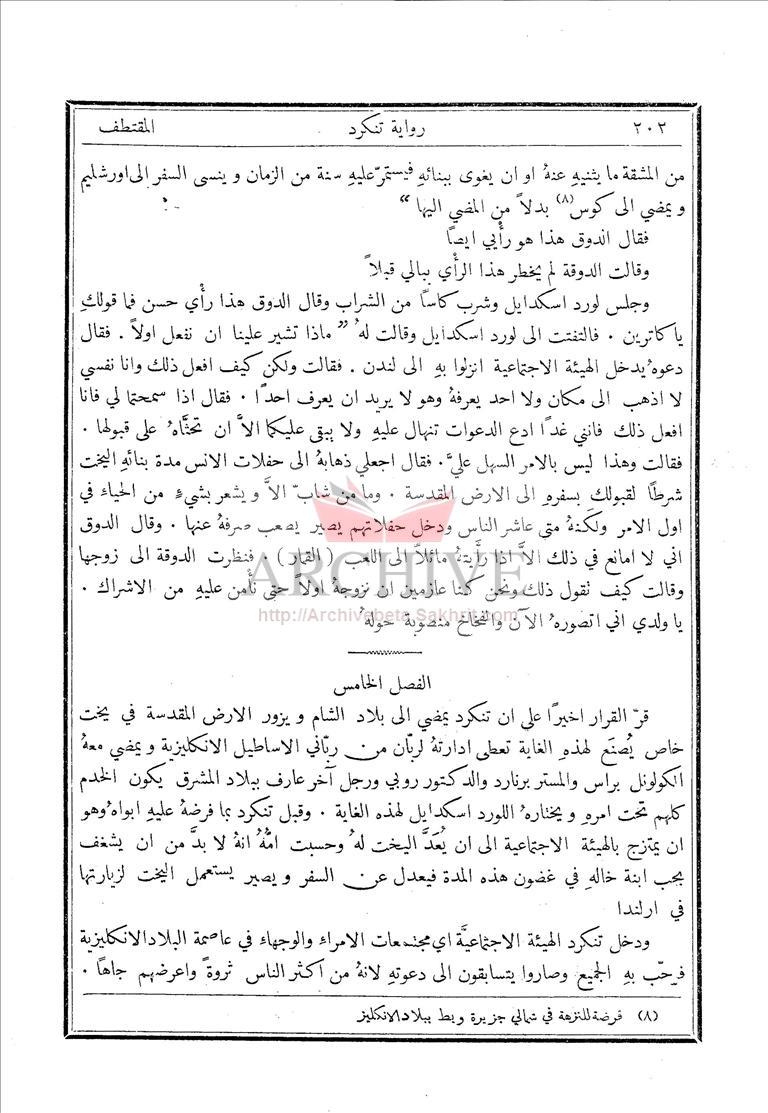 ٢٠٢ رواية تنكرد المقتطف
من المشقة ما يثنيهِ عنهُ او ان يغوى ببنائهِ فيستمرّ عليهِ سنة من الزمان وينسى السفر الى اورشليم
ويمضي الى كوس(٨) بدلاً من المضي اليها “
فقال الدوق هذا هو رأْيي ايضًا
وقالت الدوقة لم يخطر هذا الرأْي ببالي قبلاً
وجلس لورد اسكدايل وشرب كاسًا من الشراب وقال الدوق هذا رأْي حسن فما قولكِ
يا كاترين . فالتفتت الى لورد اسكدايل وقالت لهُ ” ماذا تشير علينا ان نفعل اولاً . فقال
دعوهُ يدخل الهيئة الاجتماعية انزلوا بهِ الى لندن . فقالت ولكن كيف افعل ذلك وانا نفسي
لا اذهب الى مكان ولا احد يعرفهُ وهو لا يريد ان يعرف احدًا . فقال اذا سمحتما لي فانا
افعل ذلك فانني غدًا ادع الدعوات تنهال عليهِ ولا يبقى عليكما الاَّ ان تحثَّاهُ على قبولها .
فقالت وهذا ليس بالامر السهل عليَّ . فقال اجعلي ذهابهُ الى حفلات الانس مدة بنائهِ اليخت
شرطًا لقبولك بسفرهِ الى الارض المقدسة . وما من شابّ الاَّ ويشعر بشيءٍ من الحياء في
اول الامر ولكنهُ متى عاشر الناس ودخل حفلاتهم يصير يصعب صرفهُ عنها . وقال الدوق
اني لا امانع في ذلك الاَّ اذا رأيتهُ مائلاً الى اللعب ( القمار ) . فنظرت الدوقة الى زوجها
وقالت كيف نقول ذلك ونحن كنا عازمين ان نزوجهُ اولاً حتى نأْمن عليهِ من الاشراك .
يا ولدي اني اتصورهُ الآن والفخاخ منصوبة حولهُ
ARCHIVE
http://Archivebeta.Sakhrit.com
الفصل الخامس
قرّ القرار اخيرًا على ان تنكرد يمضي الى بلاد الشام ويزور الارض المقدسة في يخت
خاص يُصنَع لهذهِ الغاية تعطى ادارتهُ لربّان من ربّاني الاساطيل الانكليزية ويمضي معهُ
الكولونل براس والمستر برنارد والدكتور روبي ورجل آخر عارف ببلاد المشرق يكون الخدم
كلهم تحت امرهِ ويختارهُ اللورد اسكدايل لهذه الغاية . وقبل تنكرد بما فرضهُ عليهِ ابواهُ وهو
ان يمتزج بالهيئة الاجتماعية الى ان يُعَدَّ اليخت لهُ وحسبت امُّهُ انهُ لا بدَّ من ان يشغف
بحب ابنة خالهِ في غضون هذه المدة فيعدل عن السفر ويصير يستعمل اليخت لزيارتها
في ارلندا
ودخل تنكرد الهيئة الاجتماعيَّة اي مجتمعات الامراء والوجهاء في عاصمة البلاد الانكليزية
فرحّب بهِ الجميع وصاروا يتسابقون الى دعوتهِ لانهُ من اكثر الناس ثروةً واعرضهم جاهًا .
(٨) فرضة للنزهة في شمالي جزيرة ويط ببلاد الانكليز